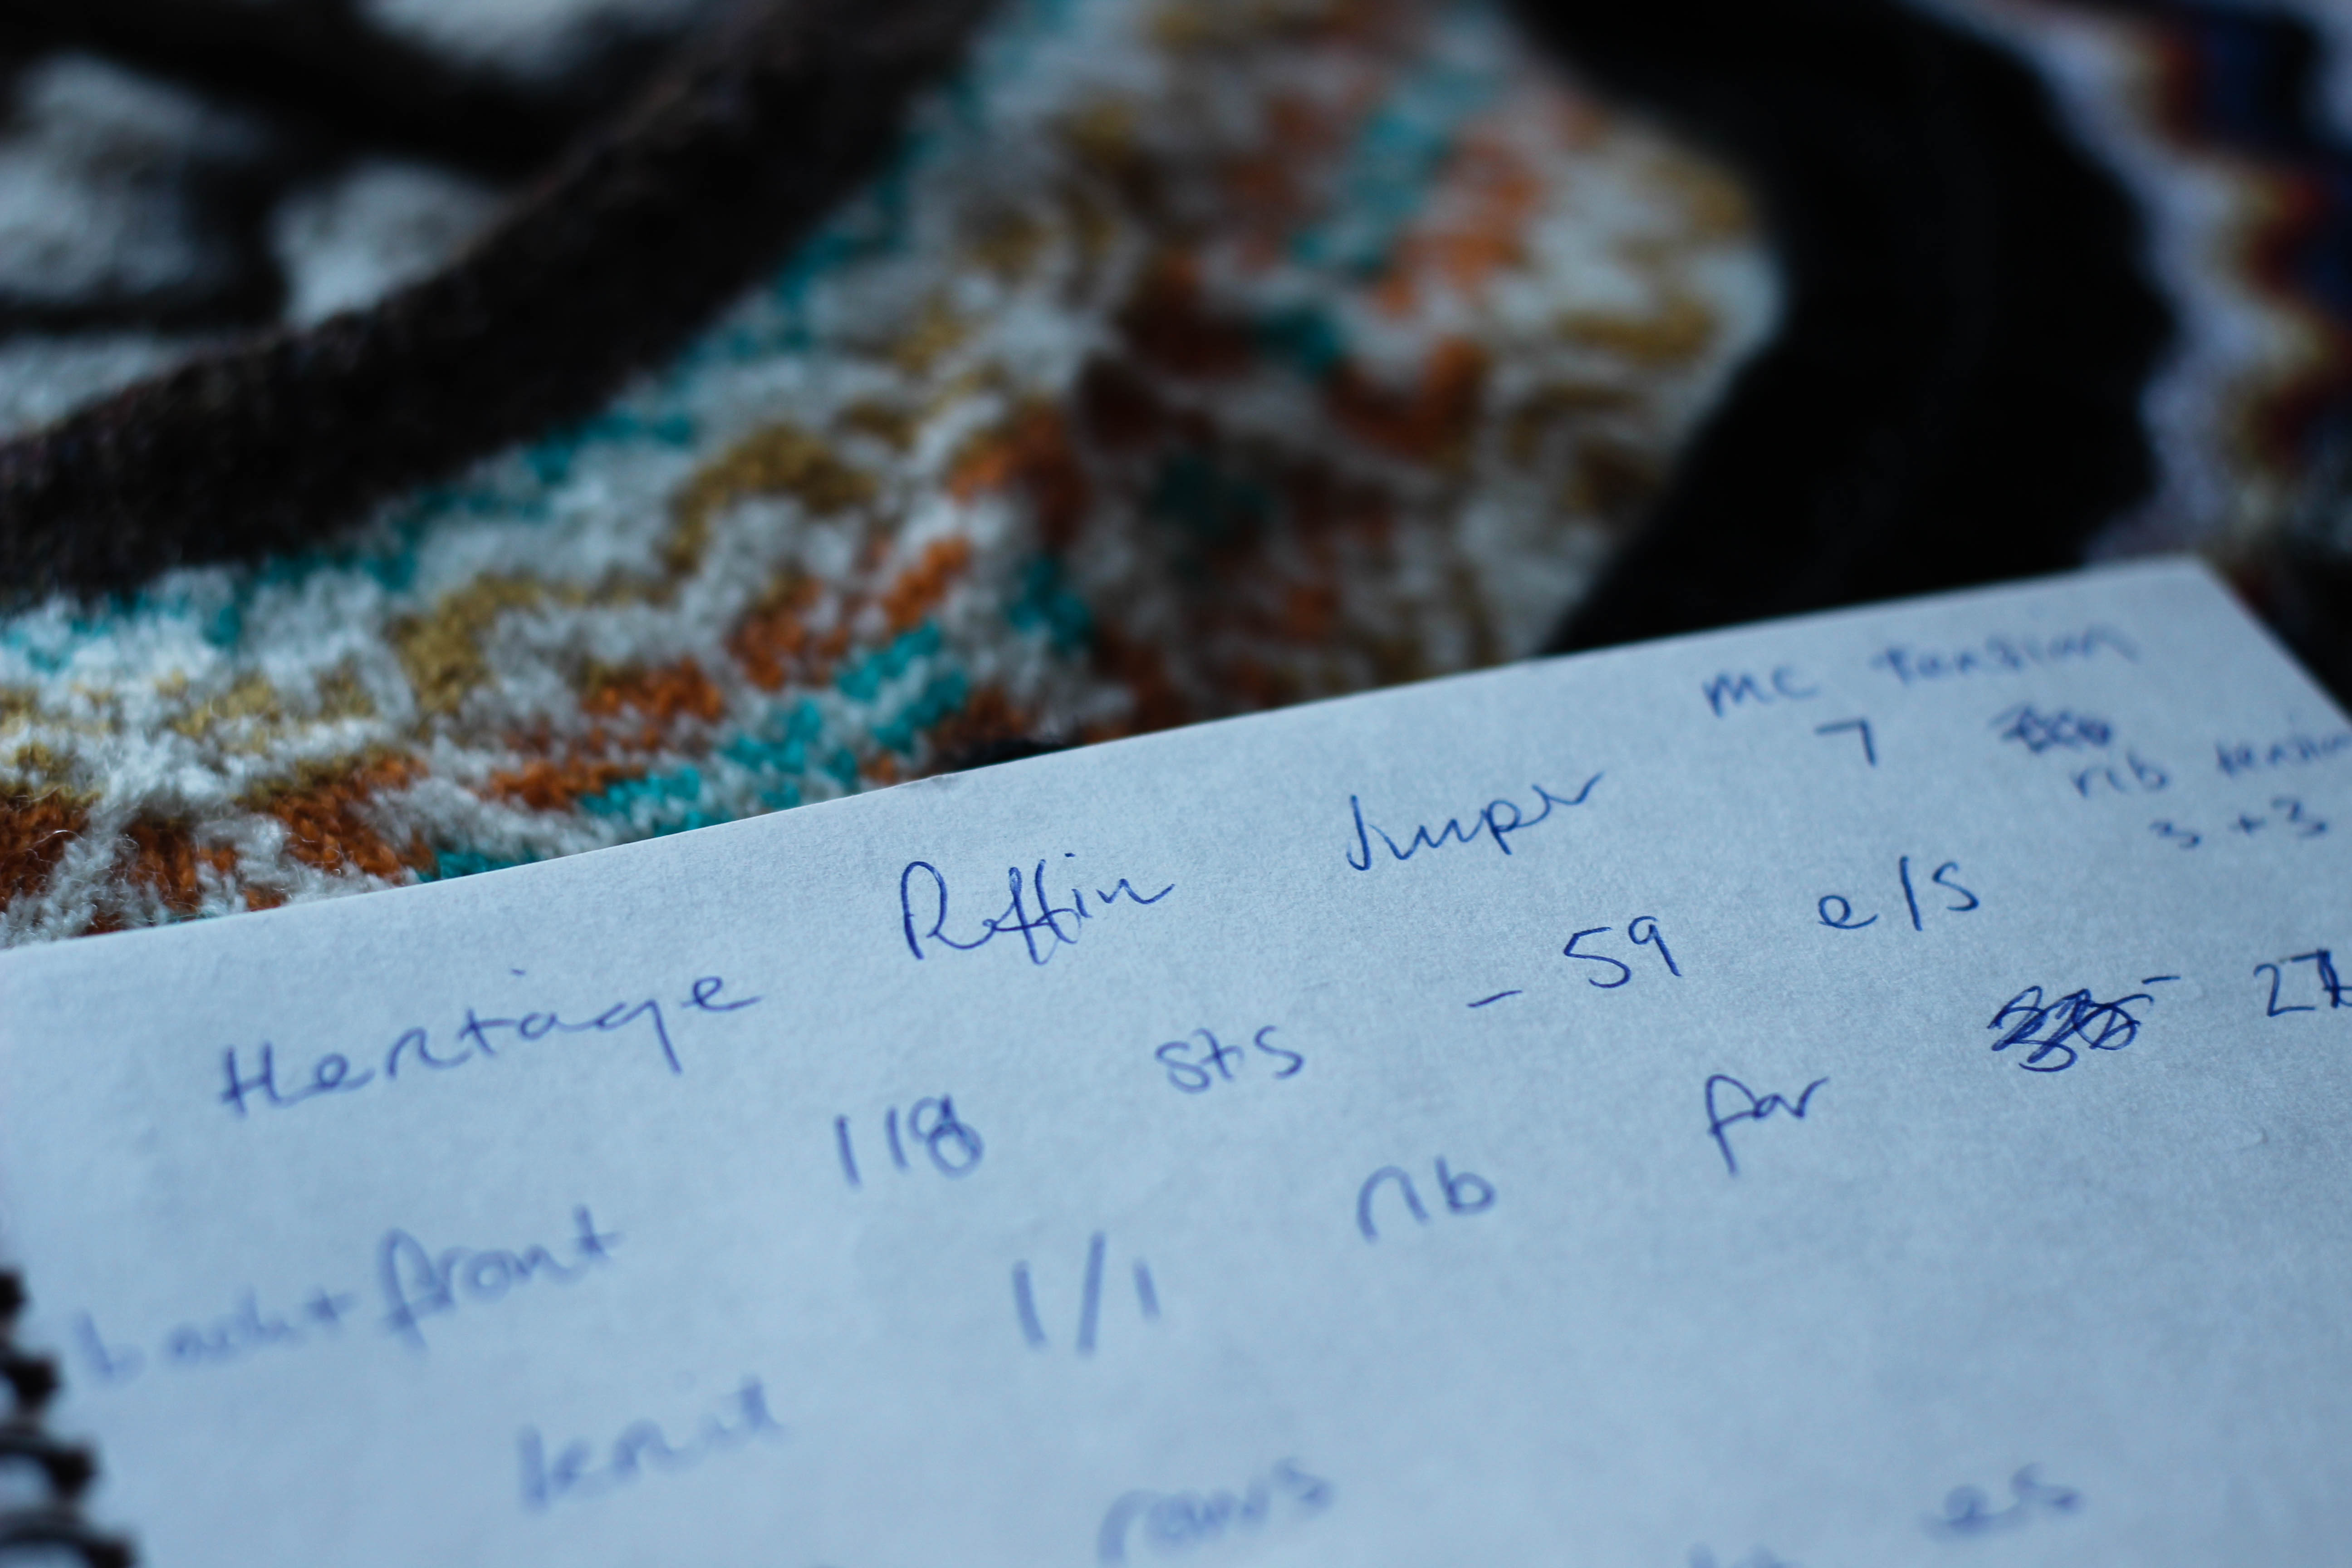 MC tension
7
rib tension
3 + 3
Heritage Puffin Jumper
back + front 118 sts - 59 e/s
knit 1/1 rib for - 27
rows